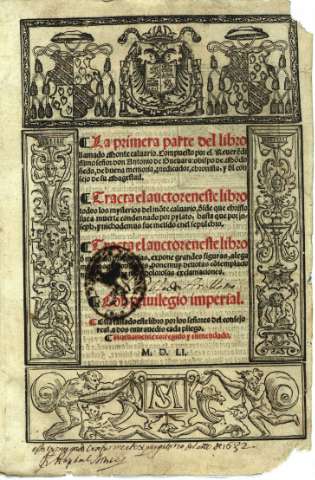 La primera parte del libro
llamado Monte caluario. Compuesto por el Reuerẽdi
simo señor don Antonio de Gueuara: obispo de Mõdo
ñedo, de buena memoria, predicador, chronista, y del con
sejo de su Magestad.
Tracta el auctor en este libro
todos los mysterios del mõte caluario, desde que christo
fue a muerte condennado por pylato, hasta que por jo
seph, y nichodemus fue metido en el sepulchro.
Tracta el auctor en este libro
expone grandes figuras, alega
deuotas cõtemplacio
exclamaciones.
Con priuilegio imperial.
Esta tassado este libro por los señores del consejo
real a dos marauedis cada pliego.
Nueuamente corregido y emendado.
M. D. LI.
de 1632